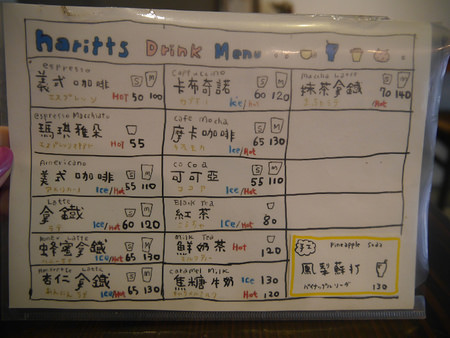 haritts Drink Menu
espresso
義式咖啡
エスプレッソ HOT 50 100
S M
espresso Macchiato
瑪琪雅朵
HOT 55
Americano
美式咖啡
Ice/Hot 55 110
S M
Latte
拿鐵
ラテ Ice/Hot 60 120
Latte
蜂蜜拿鐵
Ice/Hot 65 130
Latte
杏仁拿鐵
Ice/Hot 65 130
Cappuccino
卡布奇諾
Ice/Hot 60 120
S M
cafe Mocha
摩卡咖啡
Ice/Hot 65 130
cocoa
可可亞
ココア Ice/Hot 55 110
S M
Black Tea
紅茶
80
Milk Tea
鮮奶茶 Hot 120
caramel milk
焦糖牛奶 Ice 130
Hot 120
Matcha Latte
抹茶拿鐵
70 140
S M
Pineapple Soda
鳳梨蘇打
パイナップルソーダ 130